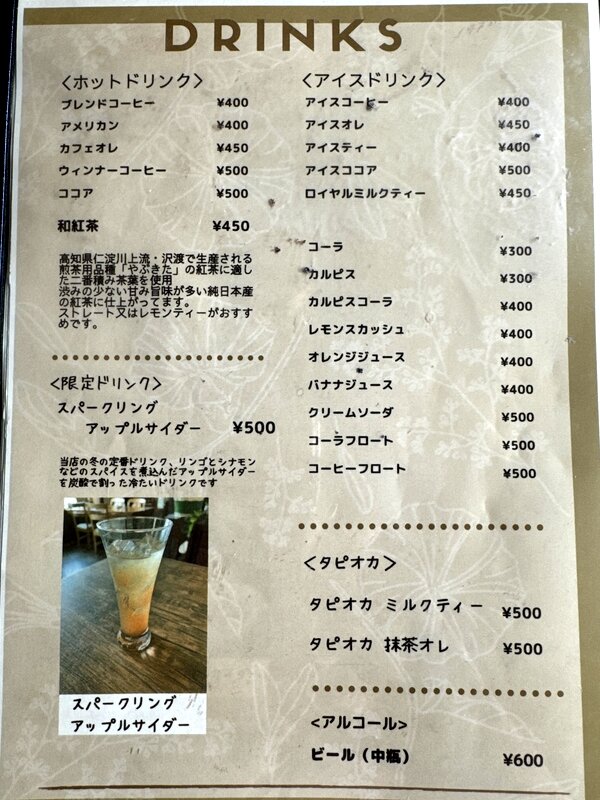 DRINKS
<ホットドリンク>
ブレンドコーヒー ¥400
アメリカン ¥400
カフェオレ ¥450
ウィンナーコーヒー ¥500
ココア ¥500
和紅茶 ¥450
高知県仁淀川上流・沢渡で生産される
煎茶用品種「やぶきた」の紅茶に適し
た二番積み茶葉を使用
渋みの少ない甘み旨味が多い純日本産
の紅茶に仕上がってます。
ストレート又はレモンティーがおすす
めです。
<限定ドリンク>
スパークリング
アップルサイダー ¥500
当店の冬の定番ドリンク、リンゴとシナモン
などのスパイスを煮込んだアップルサイダー
を炭酸で割った冷たいドリンクです
スパークリング
アップルサイダー
<アイスドリンク>
アイスコーヒー ¥400
アイスオレ ¥450
アイスティー ¥400
アイスココア ¥500
ロイヤルミルクティー ¥450
コーラ ¥300
カルピス ¥300
カルピスコーラ ¥400
レモンスカッシュ ¥400
オレンジジュース ¥400
バナナジュース ¥400
クリームソーダ ¥500
コーラフロート ¥500
コーヒーフロート ¥500
<タピオカ>
タピオカ ミルクティー ¥500
タピオカ 抹茶オレ ¥500
<アルコール>
ビール（中瓶） ¥600